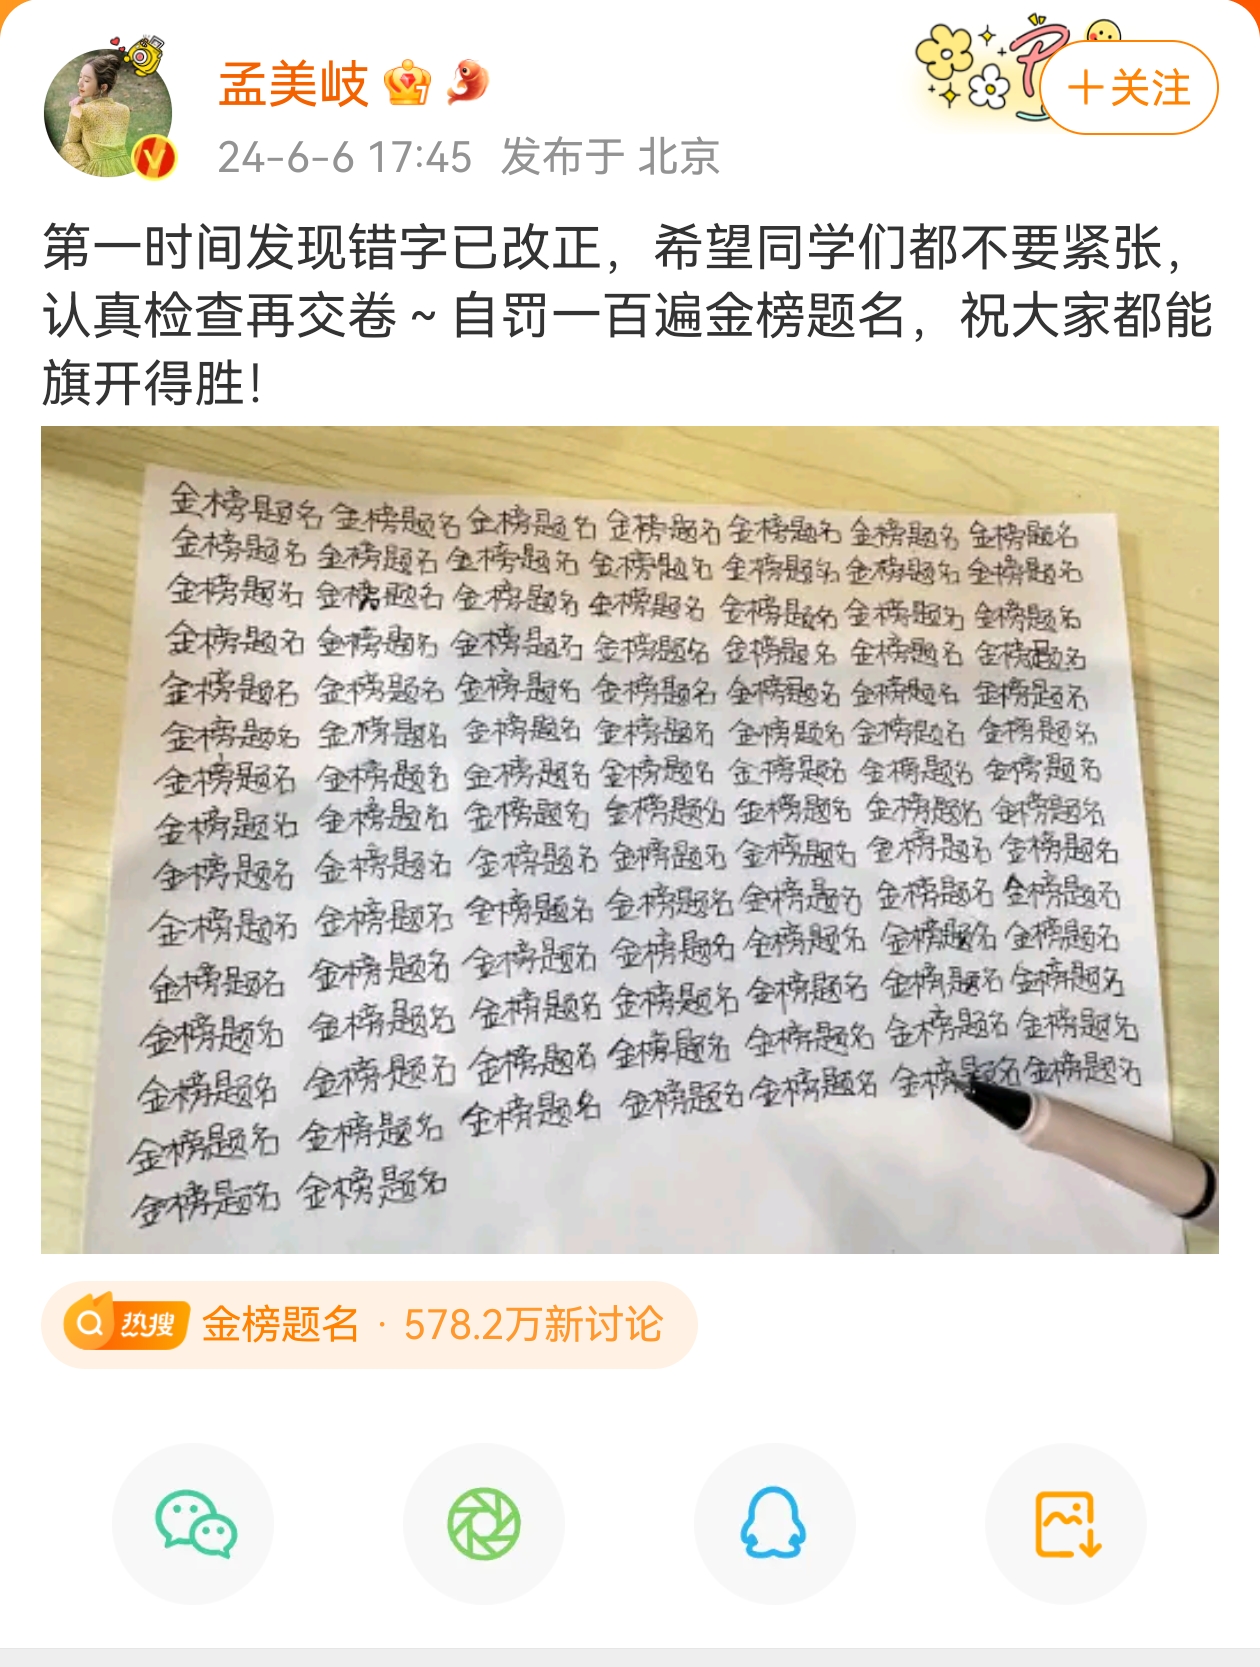 孟美岐
+关注
24-6-6 17:45 发布于 北京
第一时间发现错字已改正，希望同学们都不要紧张，
认真检查再交卷～自罚一百遍金榜题名，祝大家都能
旗开得胜！
金榜题名 金榜题名 金榜题名 金榜题名 金榜题名 金榜题名 金榜题名
金榜题名 金榜题名 金榜题名 金榜题名 金榜题名 金榜题名 金榜题名
金榜题名 金榜题名 金榜题名 金榜题名 金榜题名 金榜题名 金榜题名
金榜题名 金榜题名 金榜题名 金榜题名 金榜题名 金榜题名 金榜题名
金榜题名 金榜题名 金榜题名 金榜题名 金榜题名 金榜题名 金榜题名
金榜题名 金榜题名 金榜题名 金榜题名 金榜题名 金榜题名 金榜题名
金榜题名 金榜题名 金榜题名 金榜题名 金榜题名 金榜题名 金榜题名
金榜题名 金榜题名 金榜题名 金榜题名 金榜题名 金榜题名 金榜题名
金榜题名 金榜题名 金榜题名 金榜题名 金榜题名 金榜题名 金榜题名
金榜题名 金榜题名 金榜题名 金榜题名 金榜题名 金榜题名 金榜题名
金榜题名 金榜题名 金榜题名 金榜题名 金榜题名 金榜题名 金榜题名
金榜题名 金榜题名 金榜题名 金榜题名 金榜题名 金榜题名 金榜题名
金榜题名 金榜题名 金榜题名 金榜题名 金榜题名 金榜题名 金榜题名
金榜题名 金榜题名 金榜题名 金榜题名 金榜题名 金榜题名 金榜题名
金榜题名 金榜题名
热搜 金榜题名 · 578.2万新讨论